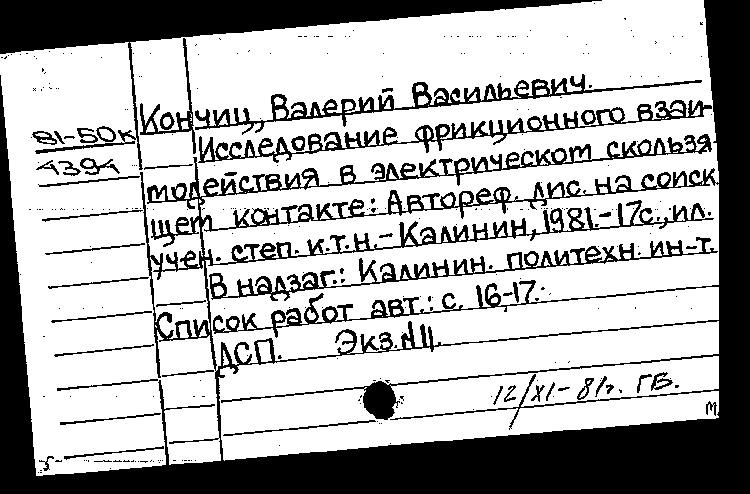 Кончиц, Валерий Васильевич.
81-50к
4394
Исследование фрикционного взаи-
модействия в электрическом скользя-
щем контакте: Автореф. дис. на соиск.
учен. степ. к.т.н. - Калинин, 1981. - 17с., ил.
В надзаг.: Калинин. политехн. ин-т.
Список работ авт.: с. 16-17.
ДСП. Экз.N11.
12/XI - 81г. ГБ.
м